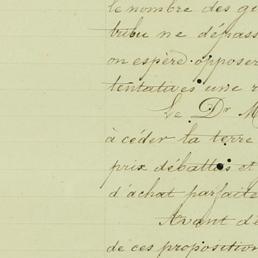 le nombre des gu
tribu ne dépass
on espère opposer
tentatives une r
Le Dr M
à céder la terre
prix débattus et
d'achat parfaite
Avant de
de ces proposition